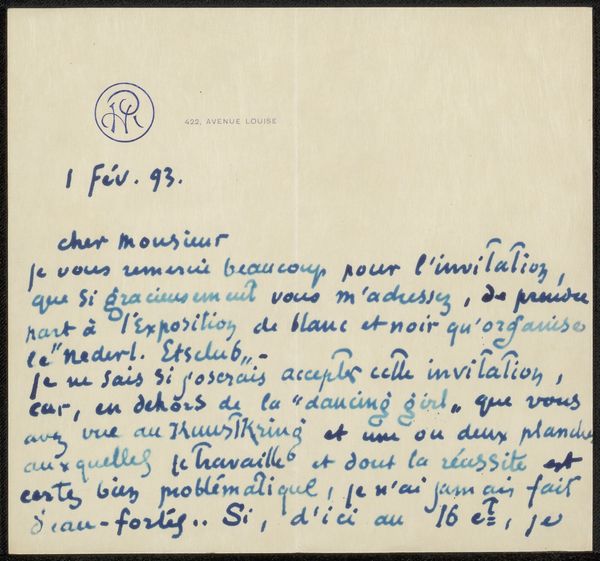 422, AVENUE LOUISE
1 fév. 93.
cher Monsieur
je vous remercie beaucoup pour l'invitation,
que si gracieusement vous m'adressez, de prendre
part à l'Exposition de blanc et noir qu'organise
le "Nederl. Etsclub".-
Je ne sais si j'oserais accepter cette invitation,
car, en dehors de la "dancing girl" que vous
avez vue au Kunstkring et une ou deux planches
auxquelles je travaille et dont la réussite est
certes bien problématique, je n'ai jamais fait
d'eau-fortes.. Si, d'ici au 16 ct, je